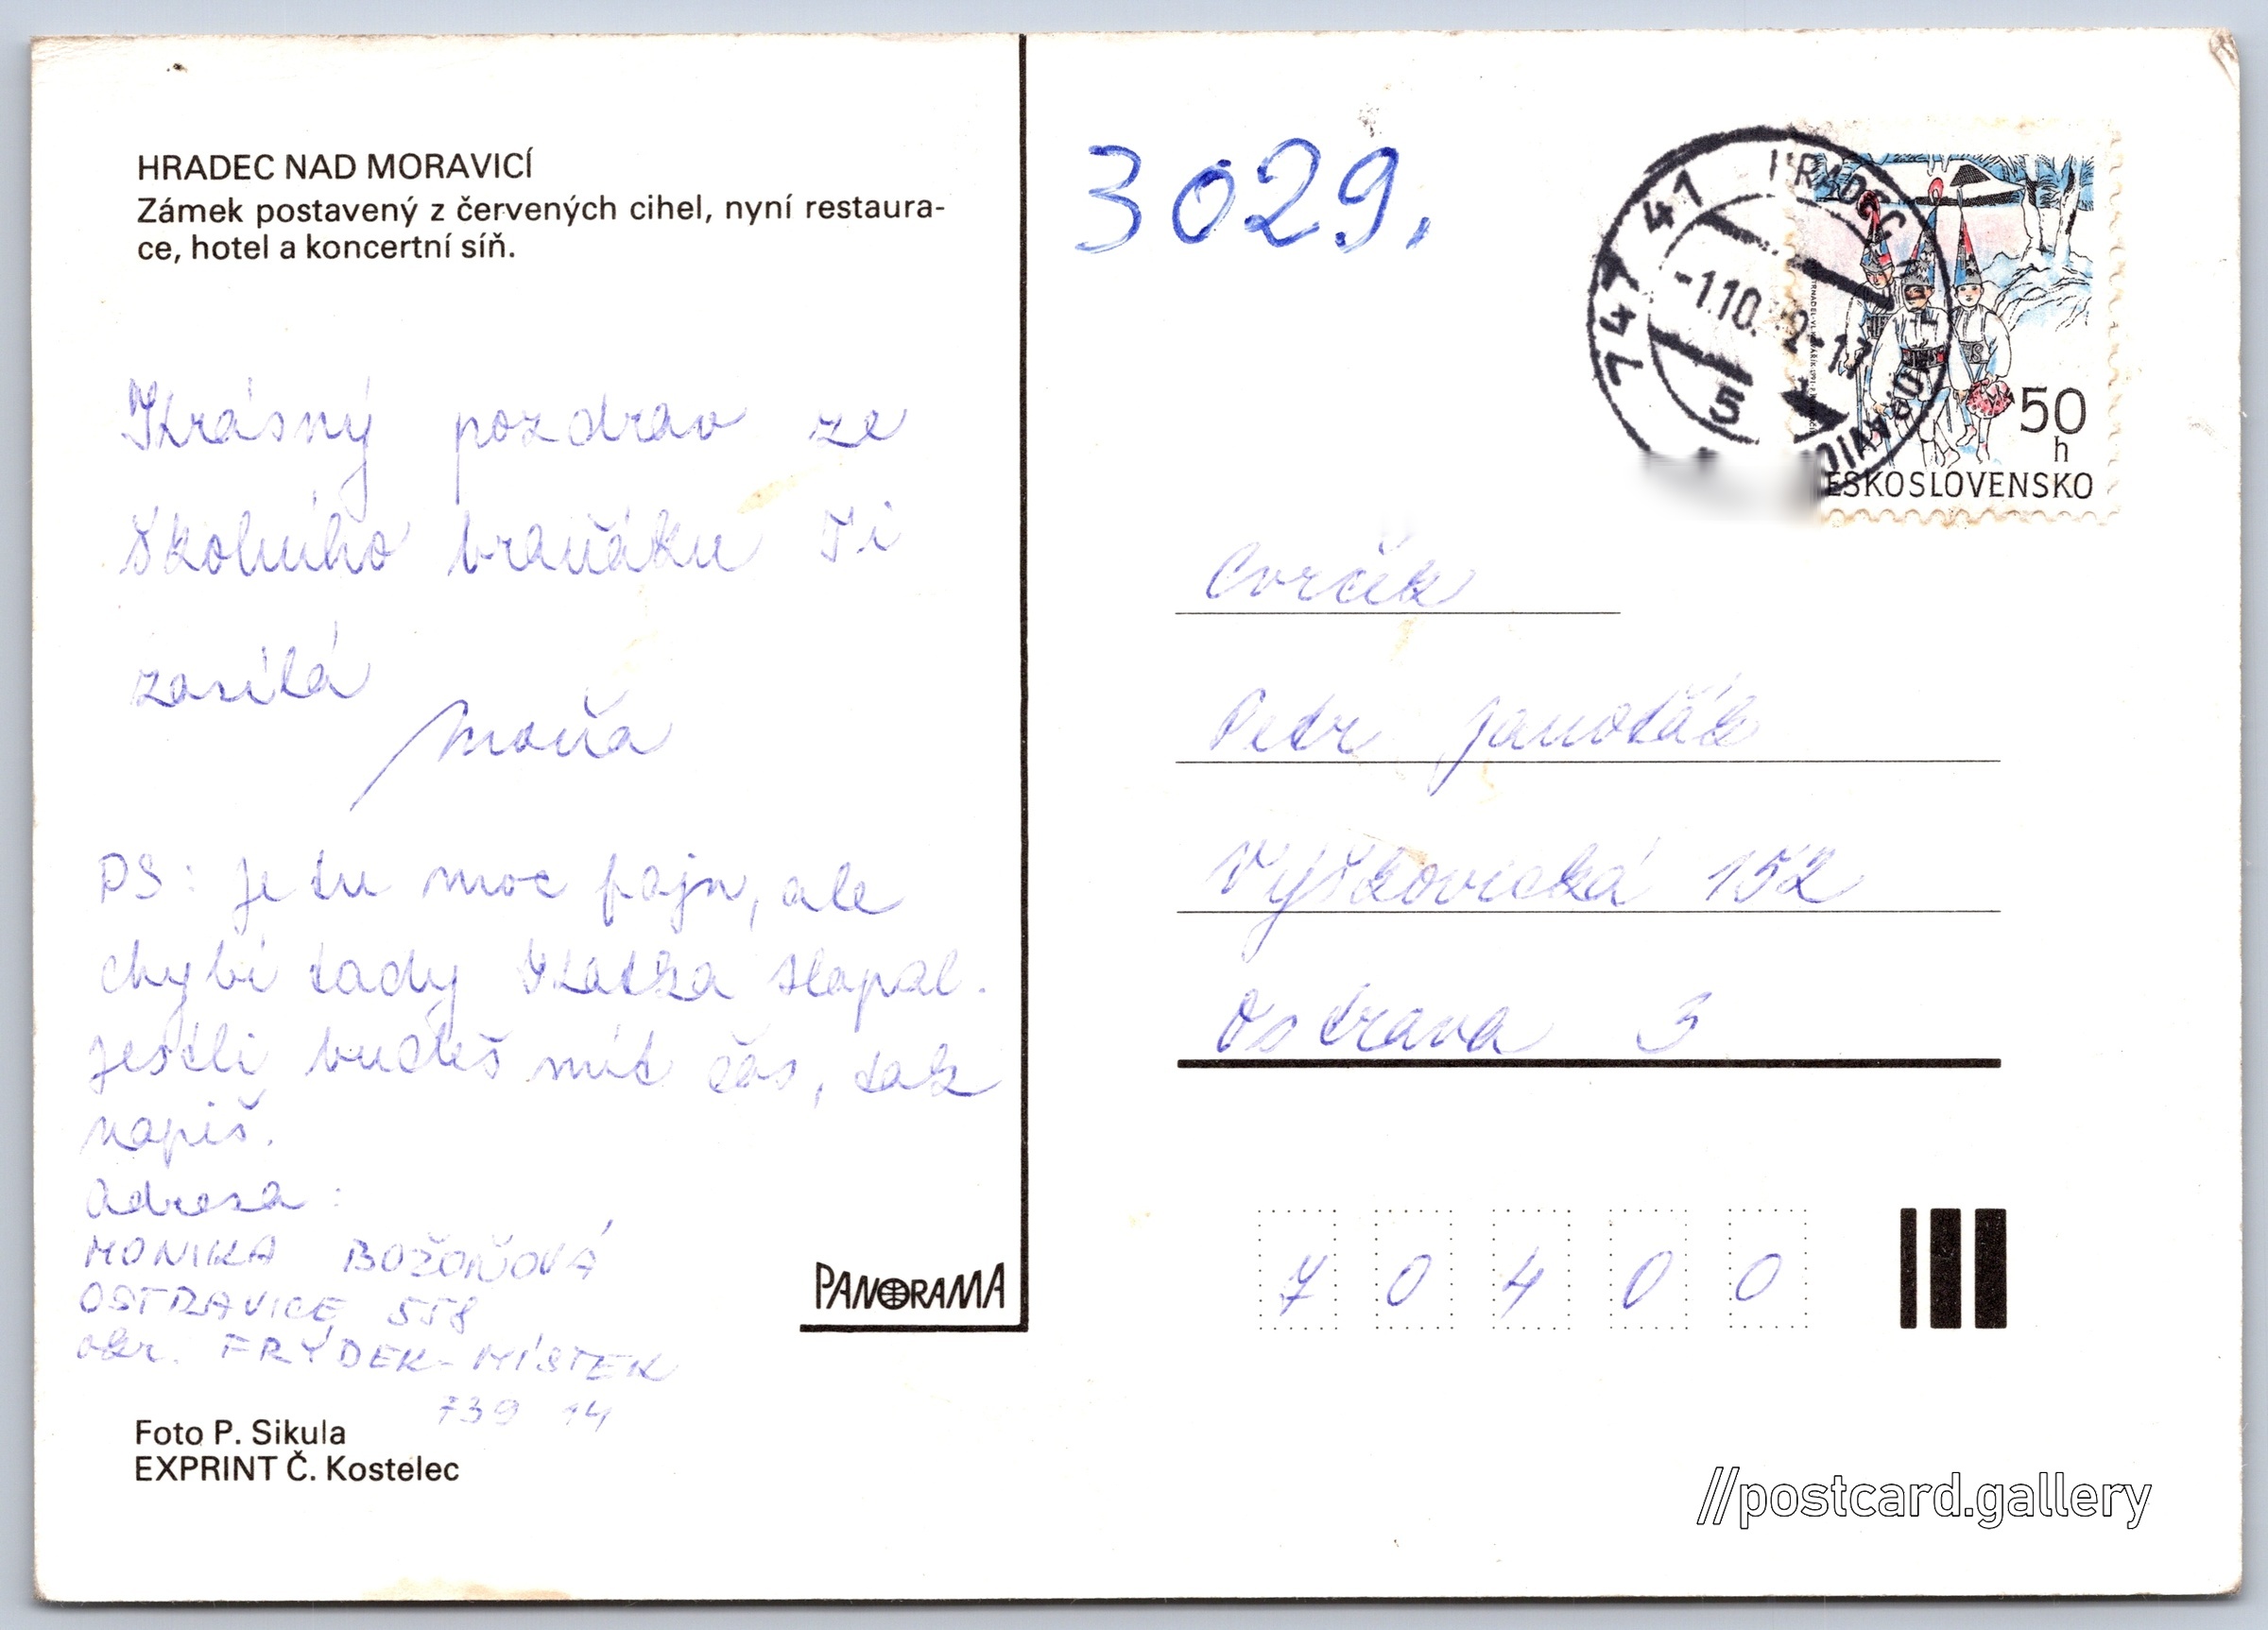 HRADEC NAD MORAVICÍ
Zámek postavený z červených cihel, nyní restaura-
ce, hotel a koncertní síň.
Krásný pozdrav ze
školního braňáku Ti
zasílá
Moňa
PS: Je tu moc fajn, ale
chybí tady Katka Slapal.
Jestli budeš mít čas, tak
napiš.
Adresa:
MONIKA BOŽOŇOVÁ
OSTRAVICE 558
okr. FRÝDEK-MÍSTEK
739 14
Foto P. Sikula
EXPRINT Č. Kostelec
PANORAMA
3029.
747 41 HRADEC
-1.10. 2-17
5
50
h
ESKOSLOVENSKO
Cvrček
Petr Janoťák
Výškovická 152
Ostrava 3
70400
//postcard.gallery